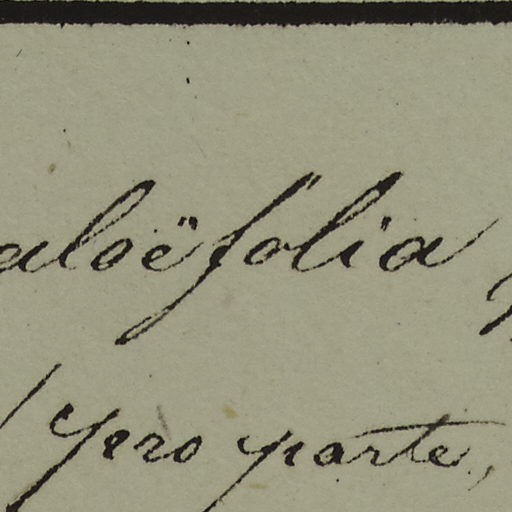 aloëfolia
pro parte,